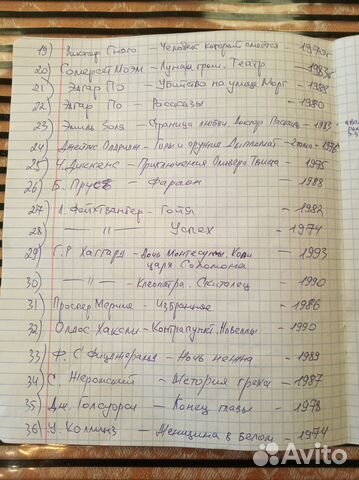 19) Виктор Гюго — Человек который смеётся — 1979г
20) Сомерсет Моэм — Луна и грош. Театр — 1983г
21) Эдгар По — Убийство на улице Морг — 1988
22) Эдгар По — Рассказы — 1980
23) Эмиль Золя — Страница любви. Доктор Паскаль — 1983
24) Джеймс Олдридж — Горы и оружие. Дипломат — 2 тома — 198
25) Ч. Диккенс — Приключения Оливера Твиста — 1975
26) Б. Прус — Фараон — 1988
27) Л. Фейхтвангер — Гойя — 1982
28) — 11 — Успех — 1974
29) Г.Р. Хаггард — Дочь Монтесумы. Копи — 1993
царя Соломона
30) — 11 — Клеопатра. Скиталец — 1990
31) Проспер Мериме — Избранное — 1986
32) Олдос Хаксли — Контрапункт. Новеллы — 1990
33) Ф. С. Фицджеральд — Ночь нежна — 1989
34) С. Жеромский — История греха — 1987
35) Дж. Голсуорси — Конец главы — 1978
36) У. Коллинз — Женщина в белом — 1974
Avito